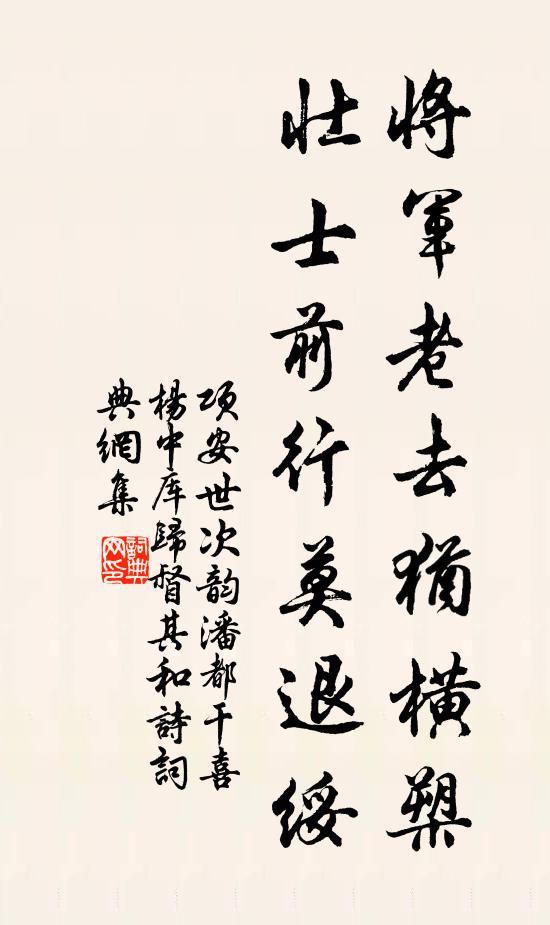 將軍老去猶橫槊
壯士前行莫退綏
項安世次韵潘都干喜
楊中库歸督其和詩詞
典網集
詞典
网印